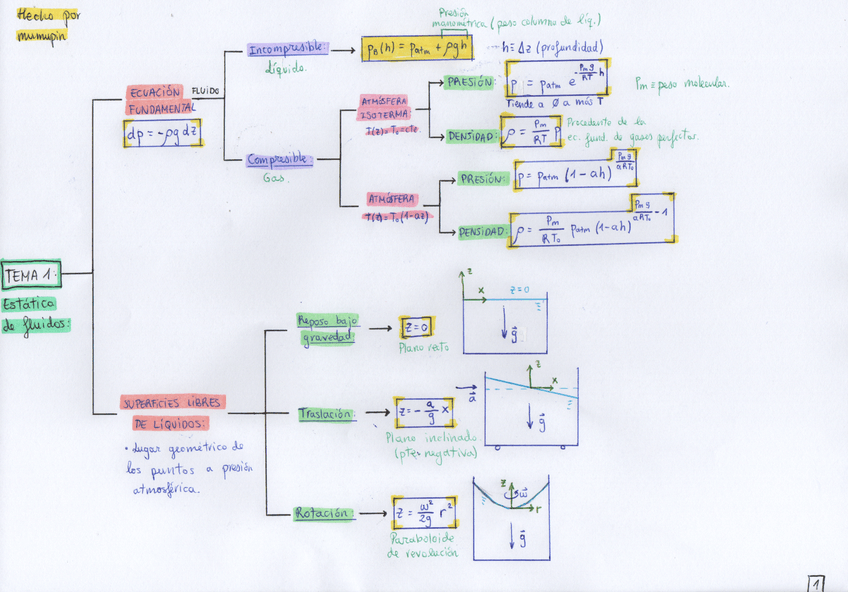 Hecho por
mumupin
TEMA 1:
Estática
de fluidos:
ECUACIÓN
FUNDAMENTAL
dp = -ρg dz
FLUIDO
Incompresible:
Líquido.
Presión
manométrica (peso columna de líq.)
pₙ(h) = patm + ρgh
h ≡ Δz (profundidad)
Compresible:
Gas.
ATMÓSFERA
ISOTERMA
T(z) = T₀ = cte
PRESIÓN:
p = patm e^(-Pm g/RT h)
Tiende a 0 a más T
Pm ≡ peso molecular.
DENSIDAD:
ρ = Pm/RT p
Procedente de la
ec. fund. de gases perfectos.
ATMÓSFERA
T(z) = T₀(1-az)
PRESIÓN:
p = patm (1-ah)^(Pm g/aRT₀)
DENSIDAD:
ρ = Pm/RT₀ patm (1-ah)^(Pm g/aRT₀ - 1)
SUPERFICIES LIBRES
DE LÍQUIDOS:
• Lugar geométrico de
los puntos a presión
atmosférica.
Reposo bajo
gravedad
z=0
Plano recto
z
x
z=0
g⃗
Traslación:
z = - a/g x
Plano inclinado
(pte. negativa)
a⃗
z
x
g⃗
Rotación:
z = ω²/2g r²
Paraboloide
de revolución
z
ω⃗
r
g⃗
1